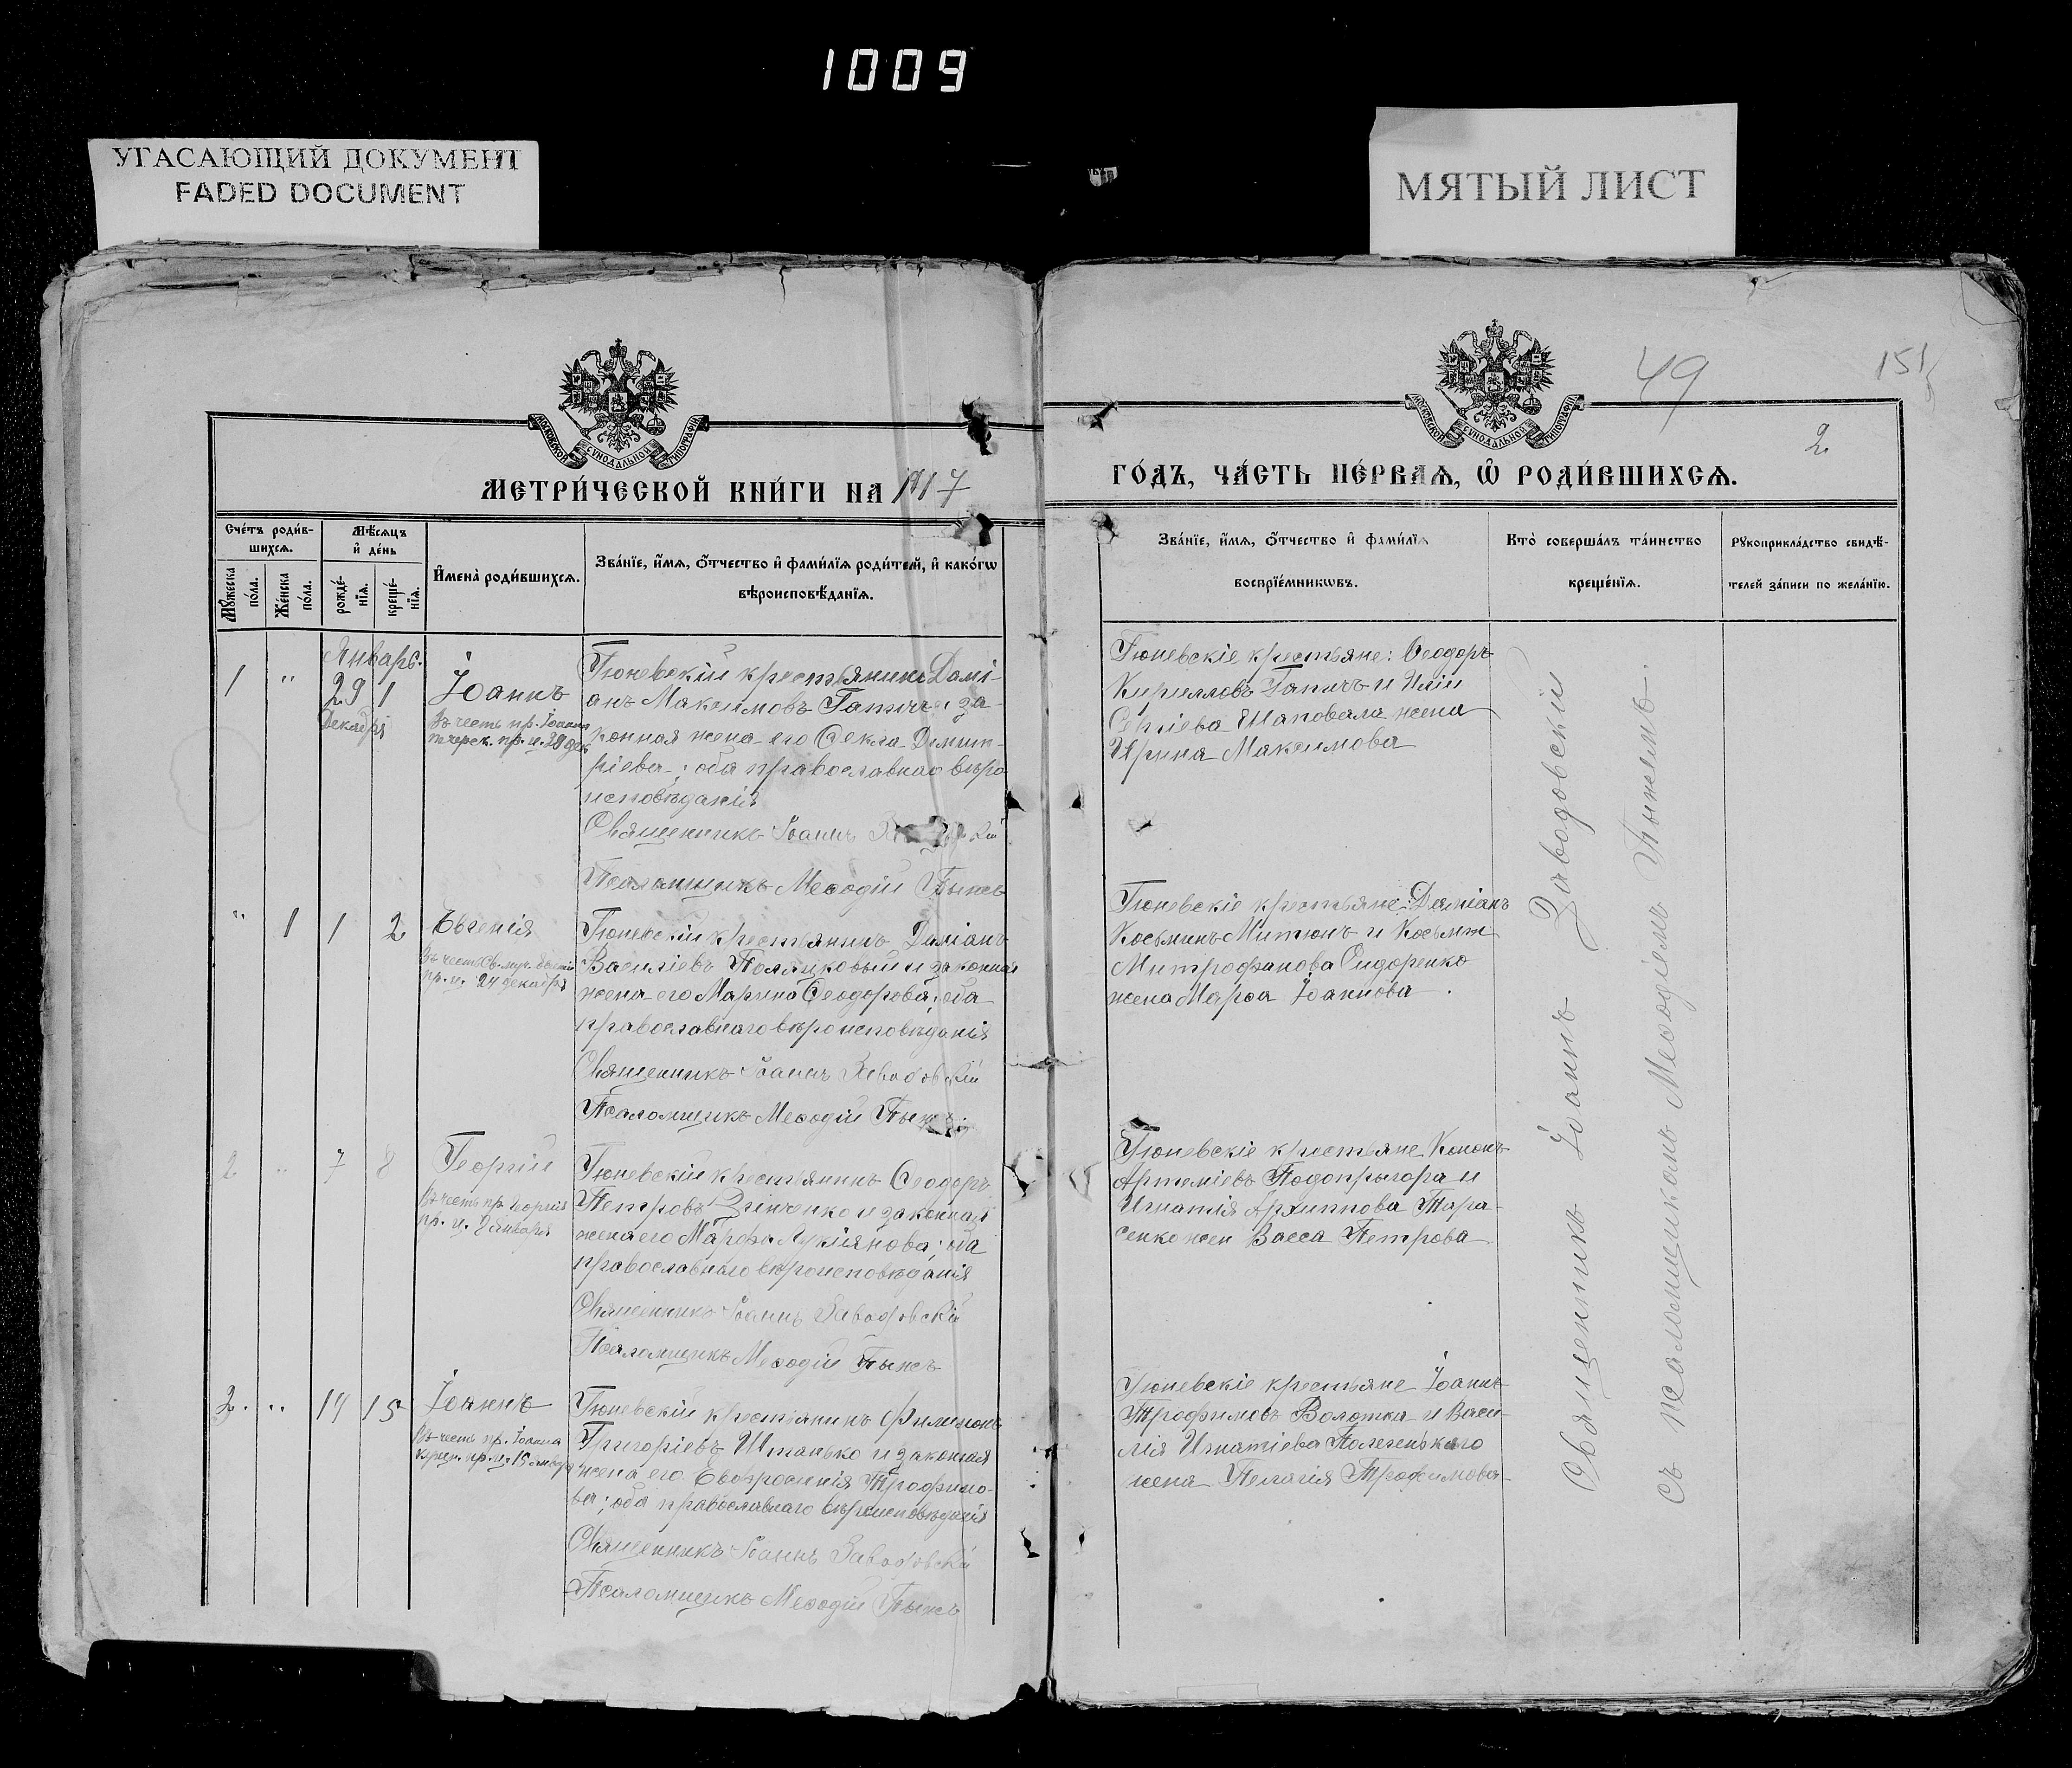 1009
УГАСАЮЩИЙ ДОКУМЕНТ
FADED DOCUMENT
МЯТЫЙ ЛИСТ
49
151
2
МОСКОВСКОЙ СѴНОДАЛЬНОЙ ТИПОГРАФІИ
МОСКОВСКОЙ СѴНОДАЛЬНОЙ ТИПОГРАФІИ
МЕТРИ́ЧЕСКОЙ КНИ́ГИ НА 1917
ГО́ДЪ, ЧА́СТЬ ПЕ́РВАЯ, Ѽ РОДИ́ВШИХСѦ.
Сче́тъ роди́в-
шихсѧ.
Мѣ́сѧцъ
и҆ де́нь
Мꙋ́жеска
по́ла.
Же́нска
по́ла.
рожде́-
нїѧ.
креще́-
нїѧ.
И҆мена̀ роди́вшихсѧ.
Зва́нїе, и҆́мѧ, ѻ҆́тчество и҆ фами́лїѧ роди́телей, и҆ како́гѡ
вѣроисповѣ́данїѧ.
Зва́нїе, и҆́мѧ, ѻ҆́тчество и҆ фами́лїѧ
воспрїе́мникѡвъ.
Кто̀ соверша́лъ та́инство
креще́нїѧ.
Рꙋкоприкла́дство свидѣ́-
телей за́писи по жела́нїю.
Январь.
1 " 29 1
Декабря
Іоаннъ
Въ честь пр. Іоанна
пр. ч. 29 дек
Гюневскій крестьянинъ Дамі-
анъ Максимовъ Гапичъ и за-
конная жена его Ѳекла Димит-
ріева; оба православнаго вѣро
исповѣданія
Священникъ Іоаннъ
Псаломщикъ Меѳодій Пынсъ
Гюневскіе крестьяне: Ѳеодоръ
Кирилловъ Гапичъ и Иліи
Сергіева Шаповала жена
Ирина Максимова
" 1 1 2
Евгенія
Въ честь св. муч. Евгеніи
пр. ч. 24 декабря
Гюневскій крестьянинъ Даміанъ
Василіевъ и законная
жена его Марина Ѳеодорова; оба
православнаго вѣроисповѣданія
Священникъ Іоаннъ Заводовскій
Псаломщикъ Меѳодій
Гюневскіе крестьяне: Даміанъ
Косьминъ Митюнъ и Косьмы
Митрофанова Сидоренко
жена Марѳа Іоаннова.
2 " 7 8
Георгій
Въ честь пр. Георгія
пр. ч. января
Гюневскій крестьянинъ Ѳеодоръ
Петровъ Зинченко и законная
жена его Марфа Лукіянова; оба
православнаго вѣроисповѣданія
Священникъ Іоаннъ Заводовскій
Псаломщикъ Меѳодій Пынсъ
Гюневскіе крестьяне Кононъ
Артеміевъ Подопрыгора и
Игнатія Архиппова Тара-
сенко жен Васса Петрова
3. " 14 15
Іоаннъ
Въ честь пр. Іоанна
пр. ч. 15 января
Гюневскій крестьянинъ Филимонъ
Григоріевъ Штанько и законная
жена его Евфросинія Трофимо-
ва; оба православнаго вѣроисповѣданія
Священникъ Іоаннъ Заводовскій
Псаломщикъ Меѳодій Пынсъ
Гюневскіе крестьяне Іоаннъ
Трофимовъ Волошка и Васи-
лія Игнатіева
жена Пелагія Трофимова
Священникъ Іоаннъ Заводовскій
съ псаломщикомъ Меѳодіемъ Пынсомъ.